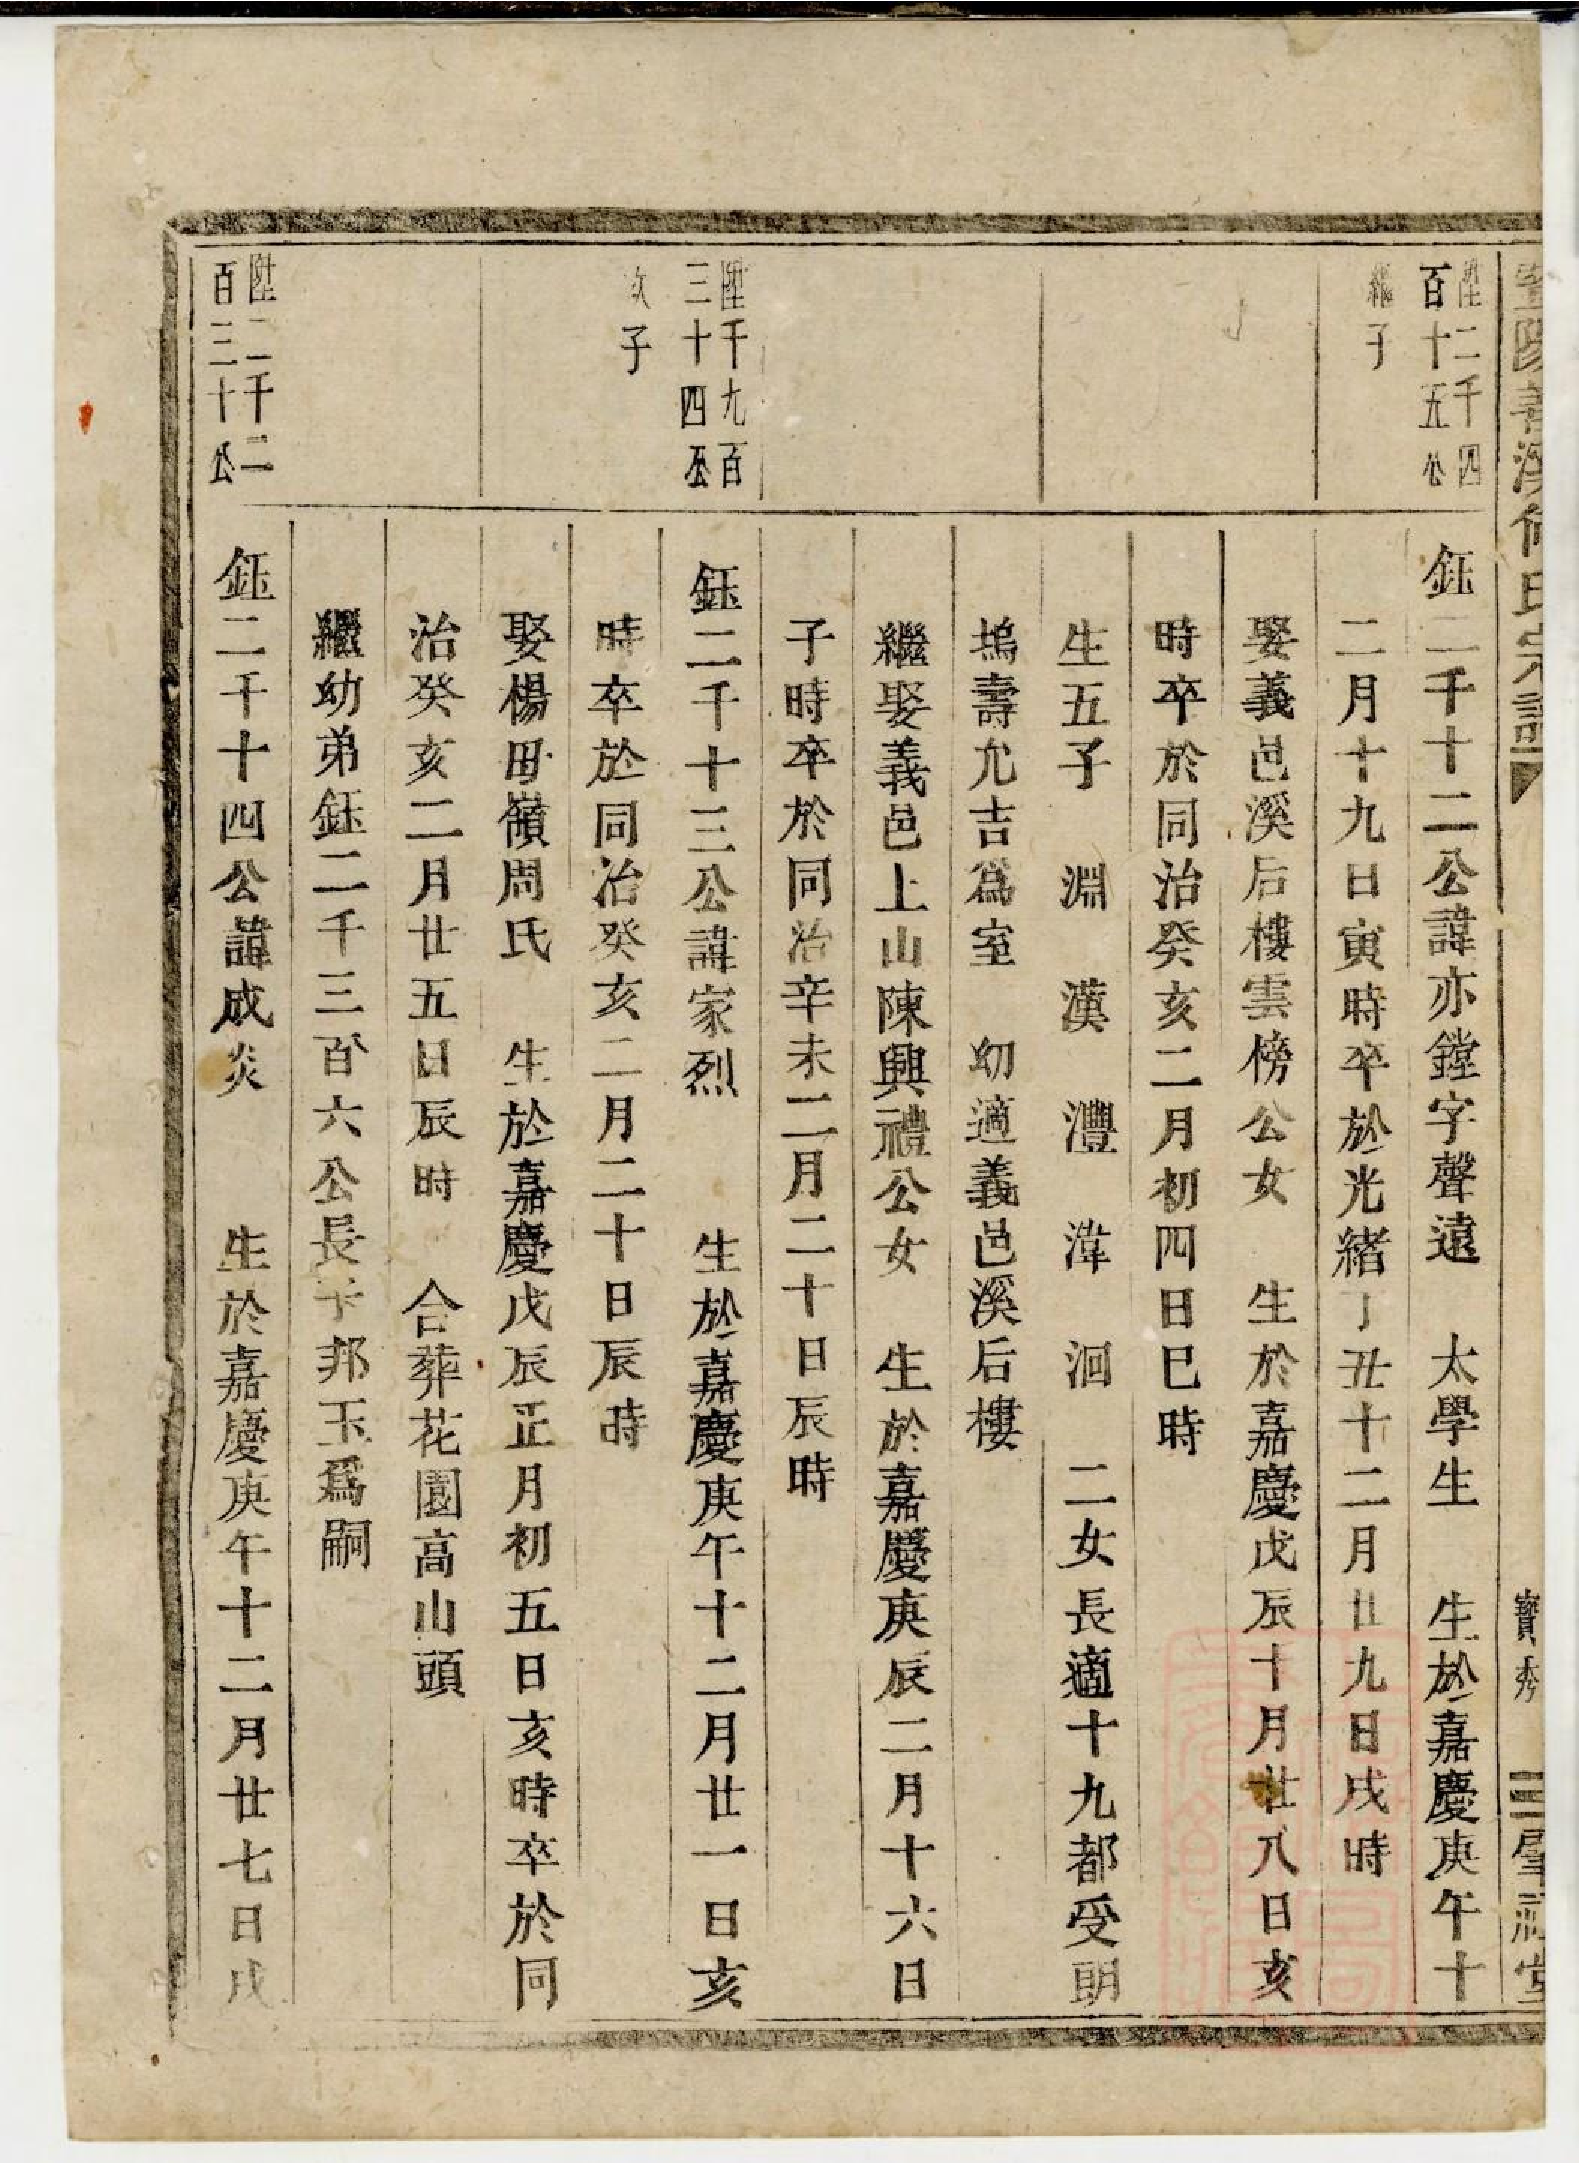 暨陽善溪何氏宗譜
寶秀
三 肇祠堂
陞二千四
百十五公
繼子
鈺二千十二公諱亦鏜字聲遠 太學生 生於嘉慶庚午十
二月十九日寅時卒於光緒丁丑十二月廿九日戌時
娶義邑溪后樓雲榜公女 生於嘉慶戊辰十月廿八日亥
時卒於同治癸亥二月初四日巳時
生五子 淵 漢 灃 湋 洄 二女長適十九都受明
塢壽允吉爲室 幼適義邑溪后樓
繼娶義邑上山陳興禮公女 生於嘉慶庚辰二月十六日
子時卒於同治辛未二月二十日辰時
陞千九百
三十四公
次子
鈺二千十三公諱家烈 生於嘉慶庚午十二月廿一日亥
時卒於同治癸亥二月二十日辰時
娶楊毌嶺周氏 生於嘉慶戊辰正月初五日亥時卒於同
治癸亥二月廿五日辰時 合葬花園高山頭
繼幼弟鈺二千三百六公長子邦玉爲嗣
陞二千二
百三十公
鈺二千十四公諱成炎 生於嘉慶庚午十二月廿七日戌